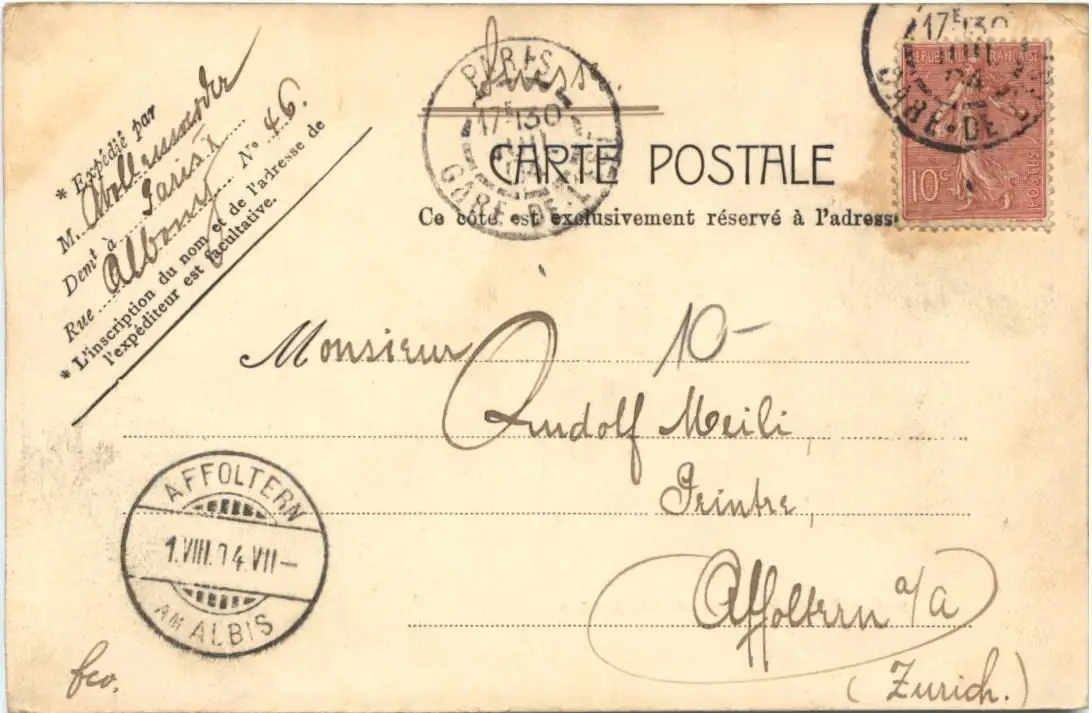 * Expédié par
M.
Demt à Paris X
Rue Albouy N° 46.
* L'inscription du nom et de l'adresse de
l'expéditeur est facultative.
Suisse.
PARIS
17E 30
JUIL
04
GARE-DE-L'EST
17E 30
JUIL
04
GARE-DE-L'EST
REPUBLIQUE FRANÇAISE
10c
POSTES
CARTE POSTALE
Ce côté est exclusivement réservé à l'adresse
Monsieur 10-
Rudolf Meili,
Peintre,
Affoltern a/A
(Zurich.)
AFFOLTERN
1.VIII.04.VII-
AM ALBIS
fco.